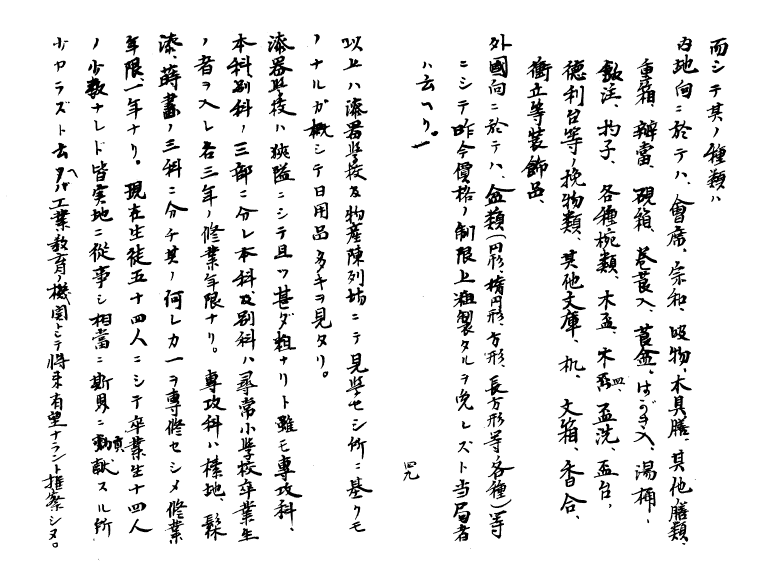 而シテ其ノ種類ハ
内地向ニ於テハ、會席、宗和、吸物、木具膳、其他膳類、
重箱、辨當、硯箱、巻莨入、莨盆、はがき入、湯桶、
飯注、杓子、各種椀類、木盃、木皿、盃洗、盃台、
德利台等ノ挽物類、其他文庫、机、文箱、香合、
衝立等裝飾品
外國向ニ於テハ、盆類(円形、楕円形、方形、長方形等各種)等
ニシテ昨今價格ノ制限上粗製タルヲ免レズト当局者
ハ云ヘリ。
四九
以上ハ漆器學校及物産陳列場ニテ見學セシ所ニ基クモ
ノナルガ概シテ日用品多キヲ見タリ。
漆器學校ハ狹隘ニシテ且ツ甚ダ粗ナリト雖モ專攻科、
本科、別科ノ三部ニ分レ本科及別科ハ尋常小學校卒業生
ノ者ヲ入レ各三年ノ修業年限ナリ。專攻科ハ㯃地、髹
漆、蒔畫ノ三科ニ分チ其ノ何レカ一ヲ專修セシメ修業
年限一年ナリ。現在生徒五十四人ニシテ卒業生十四人
ノ少数ナレド皆実地ニ従事シ相當ニ斯界ニ貢献スル所
少カラズト云ヘバ工業教育ノ機関トシテ将来有望ナラント推察シヌ。